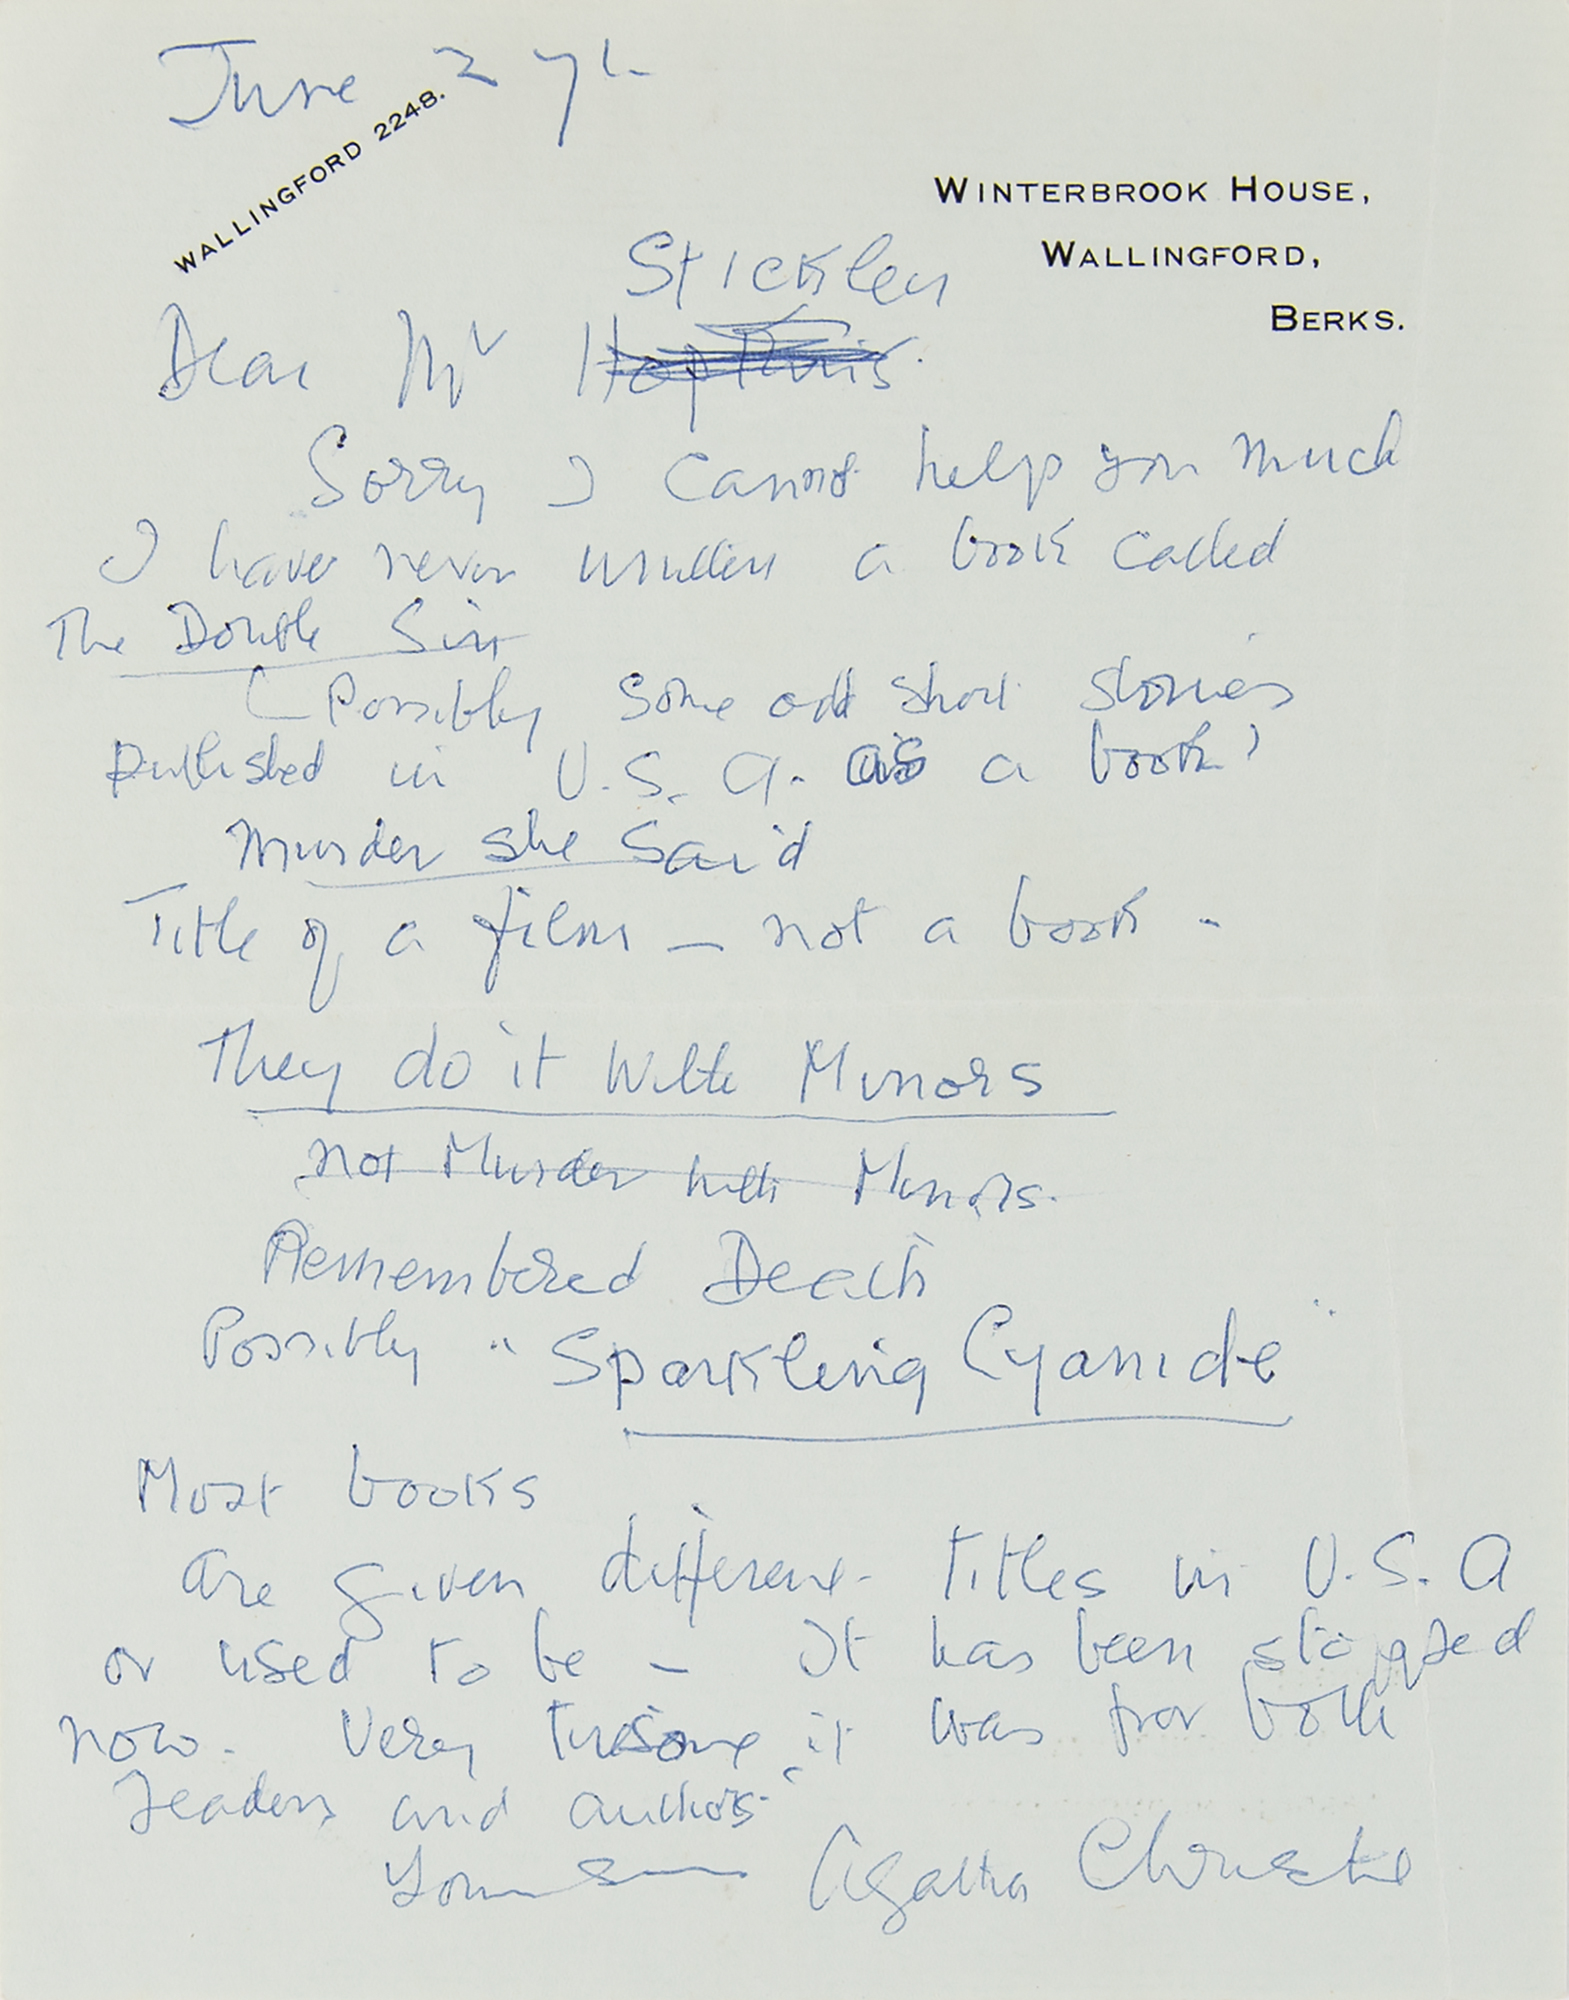 June 2 71
WALLINGFORD 2248.
WINTERBROOK HOUSE,
WALLINGFORD,
BERKS.
Stickler
Dear Mr Hopkins.
Sorry I cannot help you much
I have never written a book called
The Double Sin
(Possibly some odd short stories
published in U.S.A. as a book)
Murder she Said
Title of a film — not a book -
They do it with Mirrors
not Murder with Mirrors.
Remembered Death
Possibly "Sparkling Cyanide"
Most books
are given different titles in U.S.A
or used to be - It has been stopped
now. Very tiresome it was for both
readers and authors.
Yours Agatha Christie